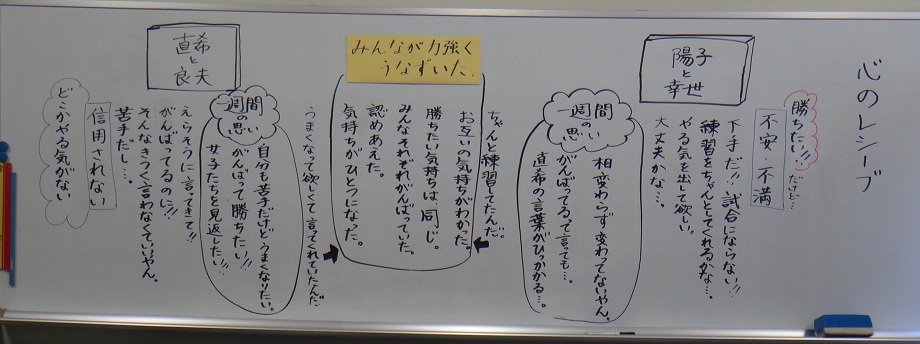 心のレシーブ
勝ちたい!!だけど…
不安・不満
陽子
と
幸世
下手だ!!試合にならない!!
練習をちゃんとしてくれるかな…。
やる気を出して欲しい。
大丈夫かな…。
一週間
の
思い
相変わらず変わってないやん。
がんばってるって言っても…。
直希の言葉がひっかかる…。
みんなが力強く
うなずいた。
ちゃんと練習してたんだ。
お互いの気持ちがわかった。
勝ちたい気持ちは、同じ。
みんなそれぞれがんばっていた。
認めあえた。
気持ちがひとつになった。
うまくなって欲しくて言ってくれていたんだ
直希
と
良夫
一週間
の
思い
・自分も苦手だけどうまくなりたい。
がんばって勝ちたい!!
女子たちを見返したい!!
えらそうに言ってきて!!
がんばってるのに!!
そんなきつく言わなくていいやん。
苦手だし…。
信用されない
どこかやる気がない